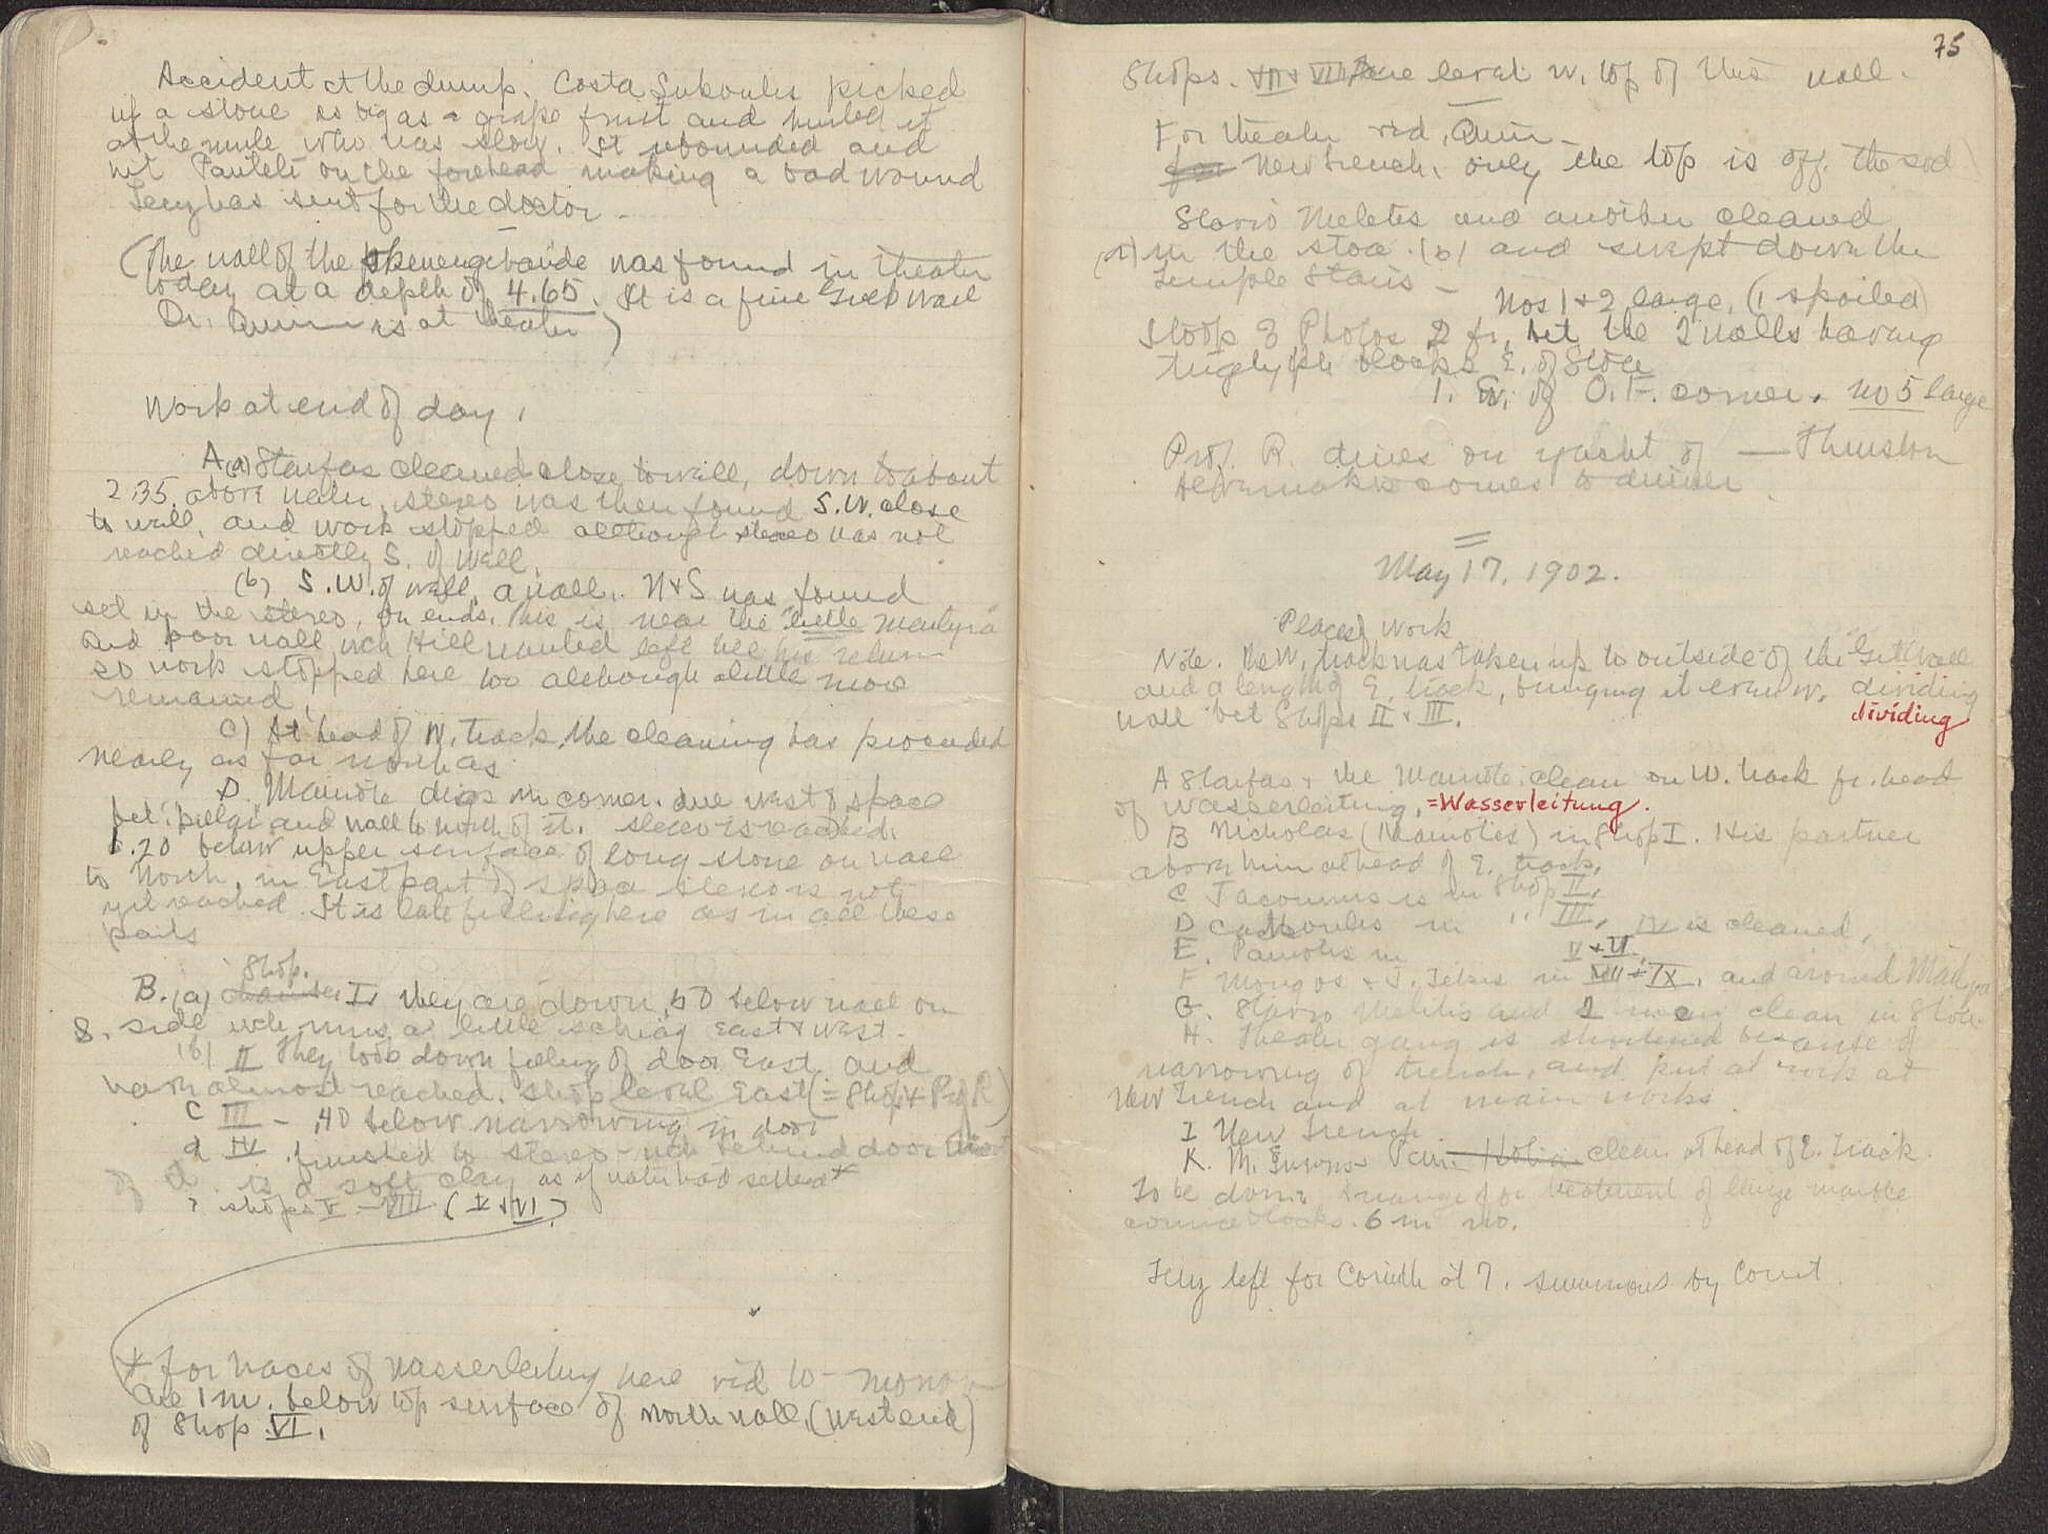 Accident at the dump. Costa picked
up a stone as big as a grape fruit and hurled it
at the mule who was slow. It rebounded and
hit Panteli on the forehead making a bad wound
has sent for the doctor.
(The wall of the Skenengebäude was found in theater
today at a depth of 4.65. It is a fine Greek wall
Dr. Quinn is at theater)
Work at end of day.
A (a) Starfas cleaned close to wall, down to about
2.35 above water, stereo was then found S.W. close
to wall, and work stopped although stereo was not
reached directly S. of wall.
(b) S.W. of wall, a wall N+S was found
set in the stereo, on ends. This is near the little
and poor wall wch Hill wanted left till his return
so work stopped here too although a little more
remained.
C) At head of W. track, the cleaning has proceeded
nearly as far north as
D. digs in corner due west of space
bet. and wall to north of it. stereo is reached.
1.20 below upper surface of long stone on wall
to North, in East part of space stereo is not
yet reached. It is late filling here as in all these
parts
Shop.
B. (a) I, they are down .50 below wall on
S. side wch runs a little East + West.
(b) II They took down filling of door East, and
have almost reached shop level East (= Shop + Prof R)
C III – .40 below narrowing in door
d IV finished to stereo – wch behind door
of is a soft clay as if water had settled *
? shops V – VIII (V + VI)
* for traces of wasserleitung here
are 1 m. below top surface of north wall, (west end)
of Shop VI.
75
Shops. VII + VIII are level w. top of this wall.
For theater vid. Quinn –
for New trench, only the top is off, the sod
Stavro Meletis and another cleaned
(a) in the stoa (b) and swept down the
Temple Stairs – Nos 1 + 2 large, (1 spoiled)
Stoop 3 Photos 2 fr. bet. the 2 walls having
triglyph blocks E. of Stoa
1. of O. F. corner. no 5 large
Prof. R. dines on yacht of — Thurston
comes to dinner.
May 17, 1902.
Places of work
Note. The W. track was taken up to outside of the Greek Wall
and a length of E. track, bringing it even w. dividing
wall bet Shops II + III. dividing
A Starfas + the clean on W. track fr. head
of wasserleitung. =Wasserleitung.
B Nicholas in Shop I. His partner
above him at head of E. track.
C is in Shop II,
D in " III, IV is cleaned,
E. in V + VI,
F in VIII + IX, and around
G. Stavro Melitis and 2 men clean in Stoa.
H. Theater gang is shortened because of
narrowing of trench, and put at work at
New Trench and at main works
I New Trench
K. M. clean at head of E. track.
To be done, arrange for treatment of large marble
cornice blocks. 6 in no.
left for Corinth at 7. summons by Court